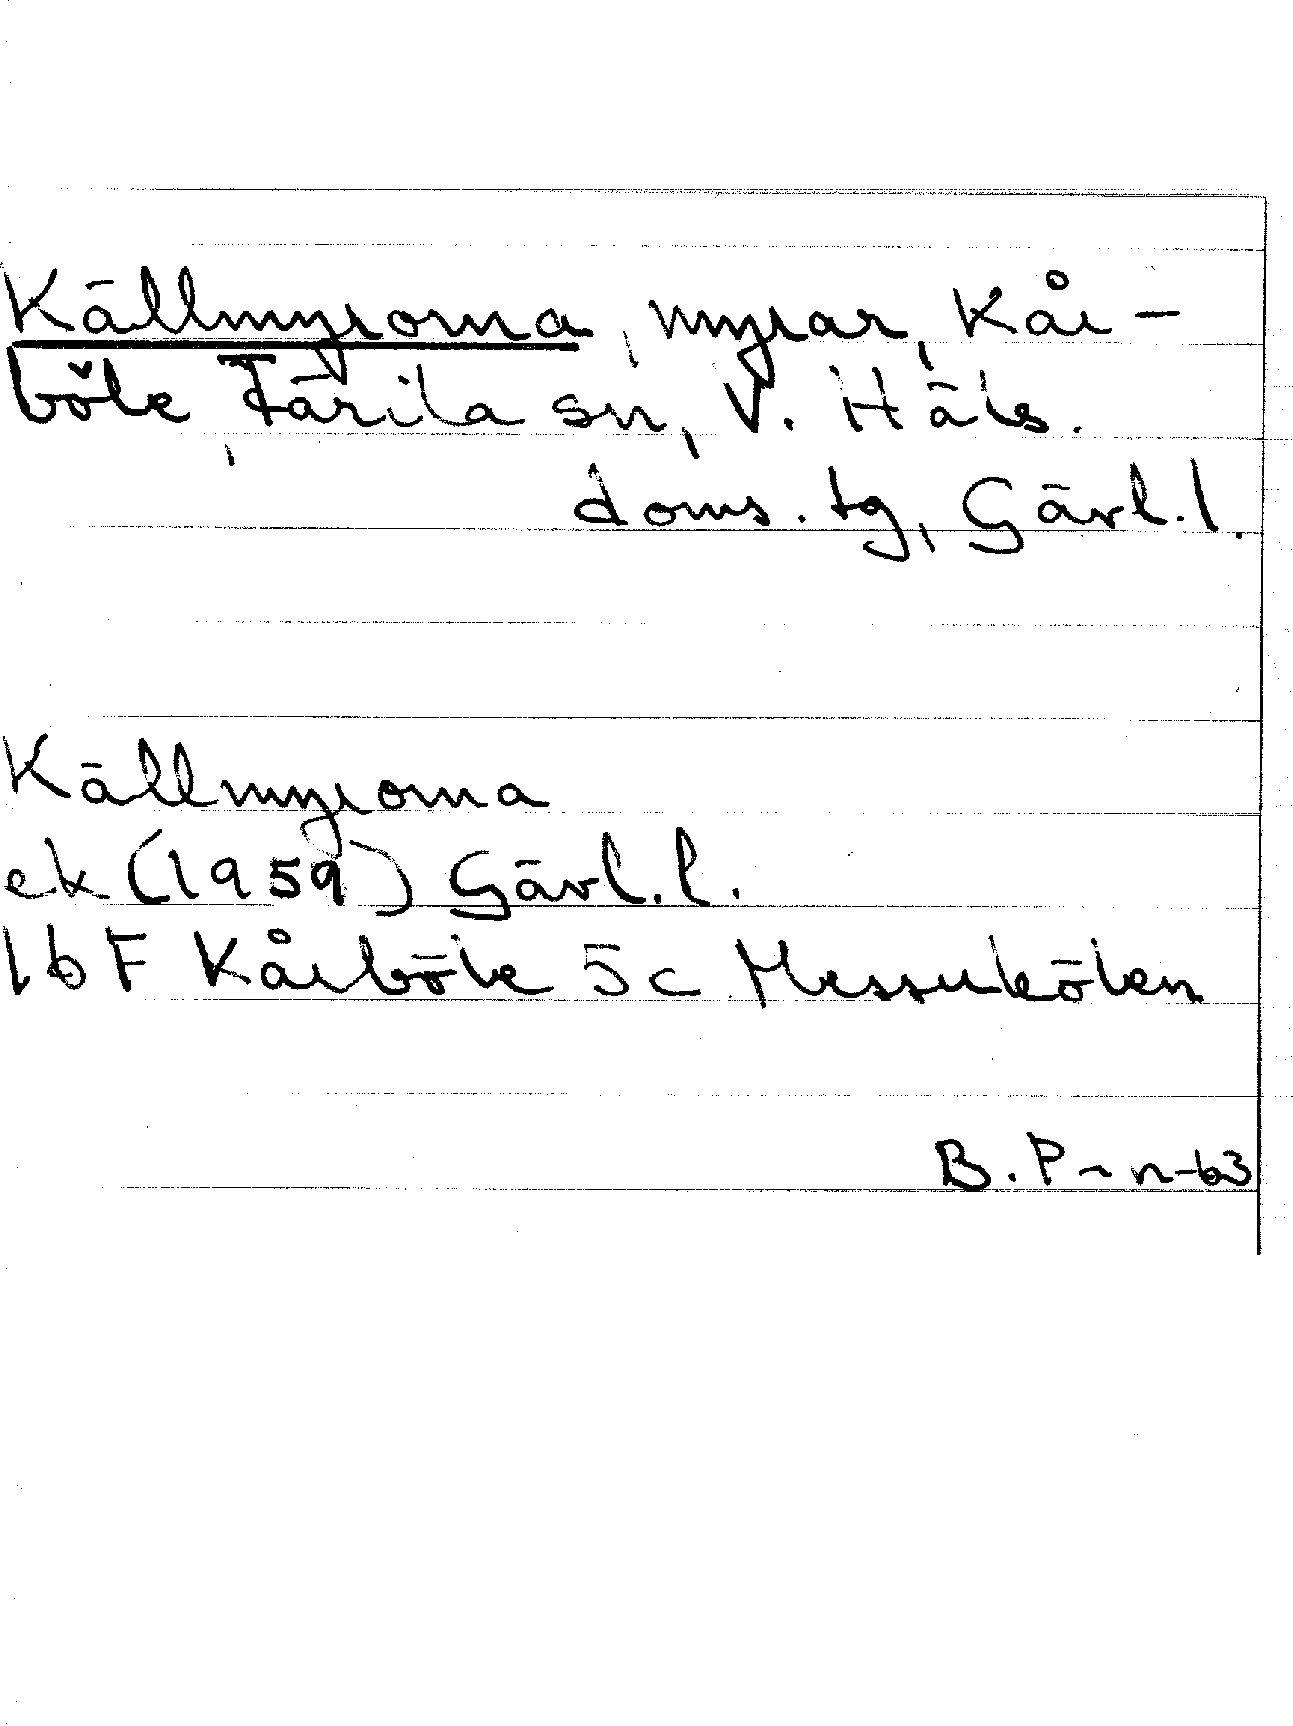 Källmyrorna, myrar, Kår-
böle, Färila sn, V. Häls.
doms. tg, Gävl. l.
Källmyrorna
ek (1959) Gävl. l.
16 F Kårböle 5c Messukölen
B. P-n-63